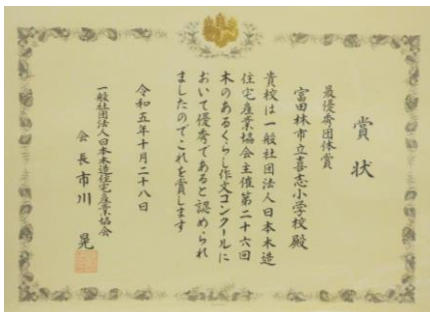 賞状
最優秀団体賞
富田林市立喜志小学校殿
貴校は一般社団法人日本木造
住宅産業協会主催第二十六回
木のあるくらし作文コンクールに
おいて優秀であると認められ
ましたのでこれを賞します
令和五年十月二十八日
一般社団法人日本木造住宅産業協会
会長市川 晃